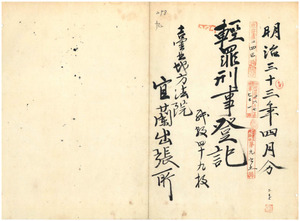 明治三十三年四月分
輕罪刑事登記
紙数四十九枚
臺北地方法院
宜蘭出張所